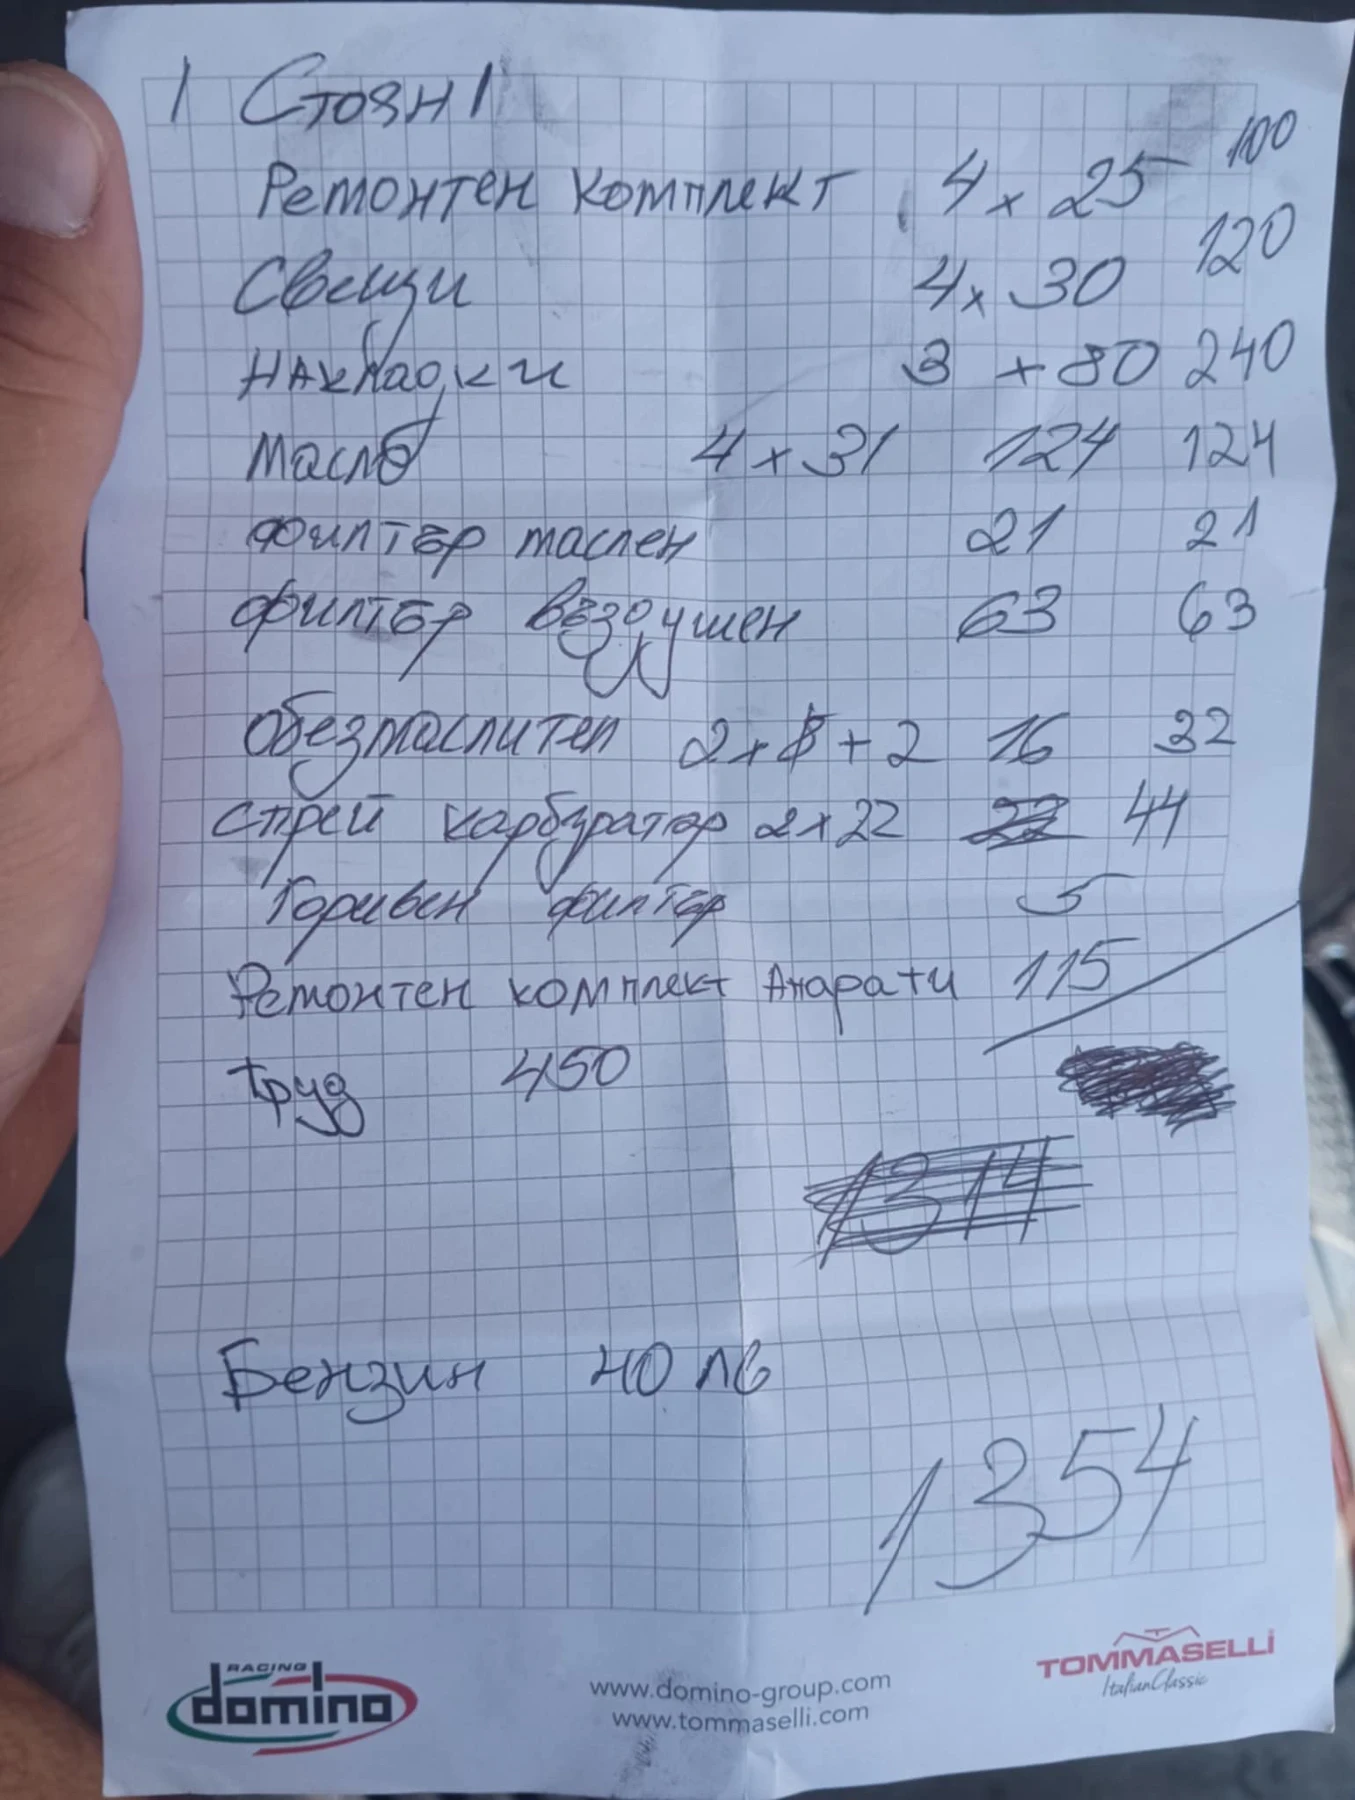 1 Стоян 1
Ремонтен комплект 4 x 25 100
Свещи 4 x 30 120
Накладки 3 x 80 240
Масло 4 x 31 124 124
филтър маслен 21 21
филтър въздушен 63 63
Обезмаслител 2 x 8 + 2 16 32
спрей карбуратор 2 x 22 22 44
Горивен филтър 5
Ремонтен комплект Апарати 115
Труд 450
1314
Бензин 40 лв
1354
RACING
domino
www.domino-group.com
www.tommaselli.com
TOMMASELLI
Italian Classic